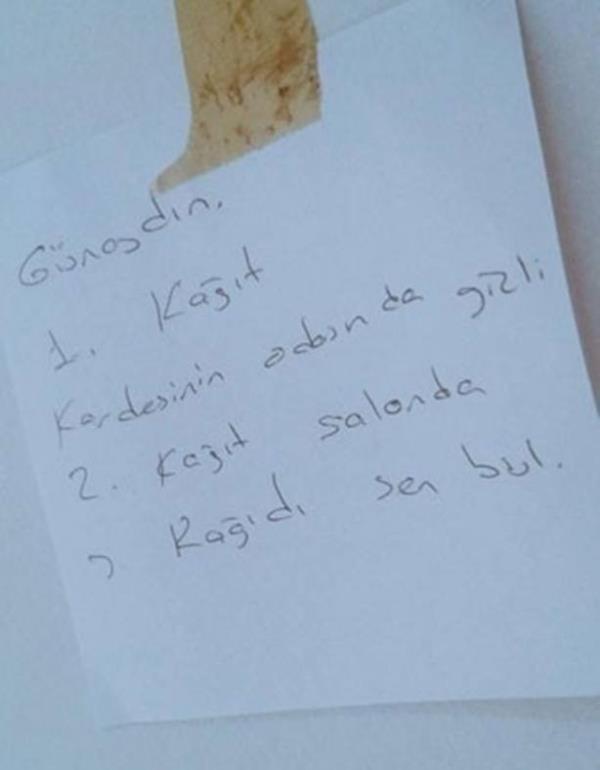 Günosdın.
1. Kağıt
Kardesinin odasında gizli
2. Kağıt salonda
? Kağıdı sen bul.